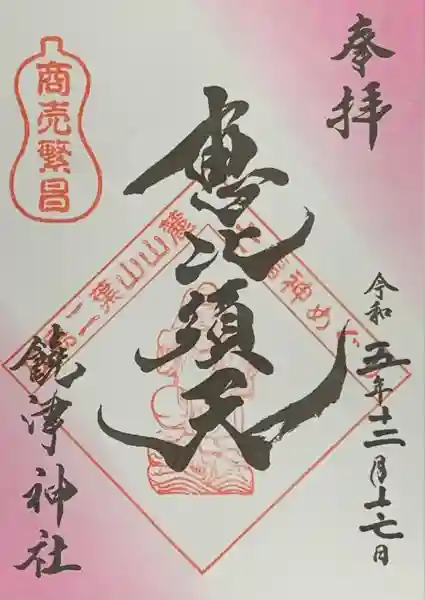 奉拝
令和五年十二月十七日
恵比須天
商売繁昌
二葉山山麓
七福神めぐり
饒津神社